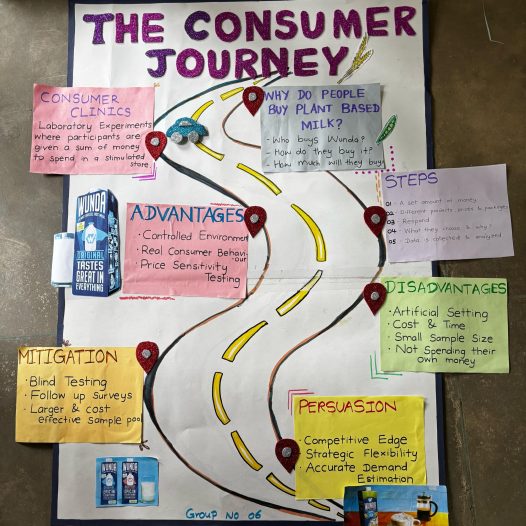 THE CONSUMER
JOURNEY
CONSUMER
CLINICS
Laboratory Experiments
where participants are
given a sum of money
to spend, in a stimulated
store.
WHY DO PEOPLE
BUY PLANT BASED
MILK?
- Who buys Wunda?
- How do they buy it?
- How much will they buy
STEPS
01 - A set amount of money
02 - Different products, prices & packages
03 - Respond
04 - What they choose & why?
05 - Data is collected & analyzed
WUNDA
ORIGINAL
TASTES
GREAT IN
EVERYTHING
ADVANTAGES
· Controlled Environment
· Real Consumer Behavi
our
· Price Sensitivity
Testing
DISADVANTAGES
· Artificial Setting
· Cost & Time
· Small Sample Size
· Not Spending their
own money
MITIGATION
· Blind Testing
· Follow up Surveys
· Larger & cost
effective Sample pool
PERSUASION
· Competitive Edge
· Strategic Flexibility
· Accurate Demand
Estimation
WUNDA WUNDA
Group No 06